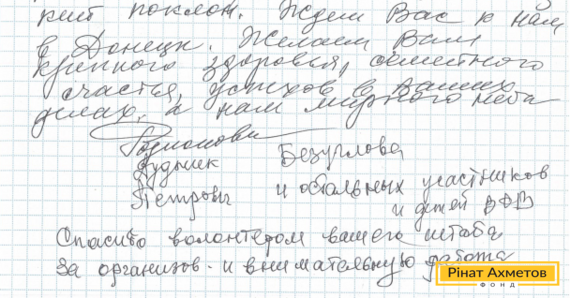 кий поклон. Ждем Вас к нам
в Донецк. Желаем Вам
крепкого здоровья, семейного
счастья, успехов в Ваших
делах, а нам мирного неба
Родионовы
Дудник Безуглова
Петровы и остальных участников
и детей ВОВ
Спасибо волонтером вашего штаба
за организов. и внимательную работа
Рінат Ахметов
ФОНД